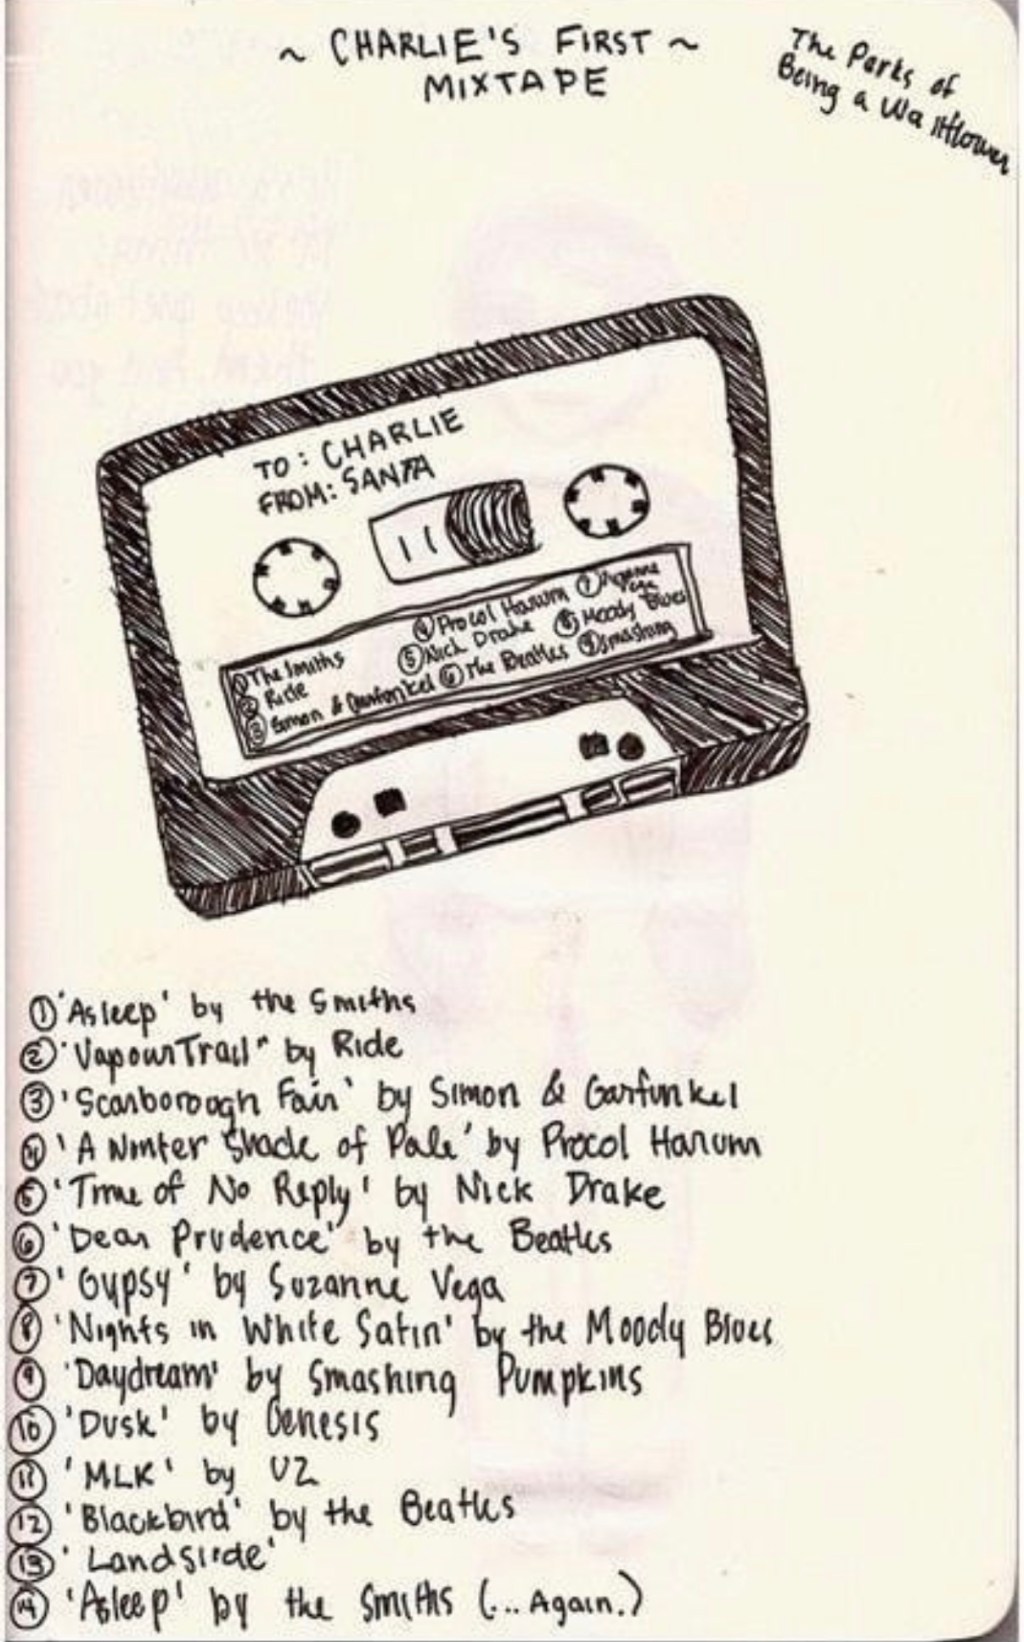 ~ CHARLIE'S FIRST ~
MIXTAPE
The Perks of
Being a Wallflower
TO: CHARLIE
FROM: SANTA
① The Smiths
② Ride
③ Simon & Garfunkel
④ Procol Harum
⑤ Nick Drake
⑥ The Beatles
⑦ Suzanne
Vega
⑧ Moody Blues
⑨ Smashing
① 'Asleep' by the Smiths
② 'Vapour Trail" by Ride
③ 'Scarborough Fair' by Simon & Garfunkel
④ 'A Winter Shade of Pale' by Procol Harum
⑤ 'Time of No Reply' by Nick Drake
⑥ 'Dear Prudence' by the Beatles
⑦ 'Gypsy' by Suzanne Vega
⑧ 'Nights in White Satin' by the Moody Blues
⑨ 'Daydream' by Smashing Pumpkins
⑩ 'Dusk' by Genesis
⑪ 'MLK' by U2
⑫ 'Blackbird' by the Beatles
⑬ 'Landslide'
⑭ 'Asleep' by the Smiths (... Again.)